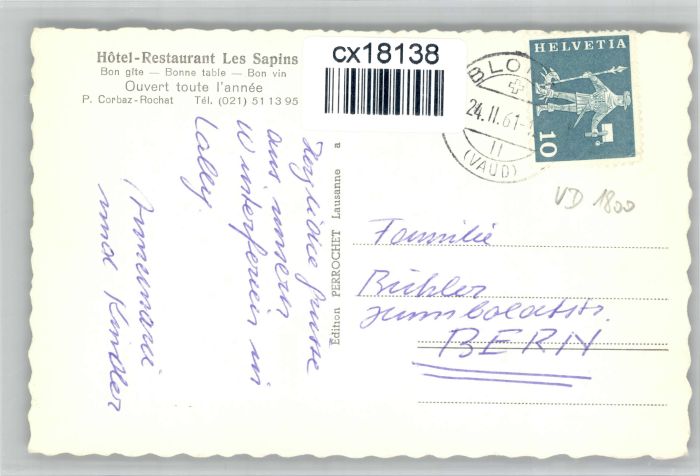 Hôtel-Restaurant Les Sapins
Bon gîte — Bonne table — Bon vin
Ouvert toute l'année
P. Corbaz-Rochat Tél. (021) 51 13 95
cx18138
BLON
24.II.61-1
11
(VAUD)
HELVETIA
10
VD 1800
Herzliche Grüsse
aus unsern
Winterferien in
Lally.
Annemarie
und Kinder
Edition PERROCHET Lausanne a
Familie
Bühler
Humboldtstr.
BERN